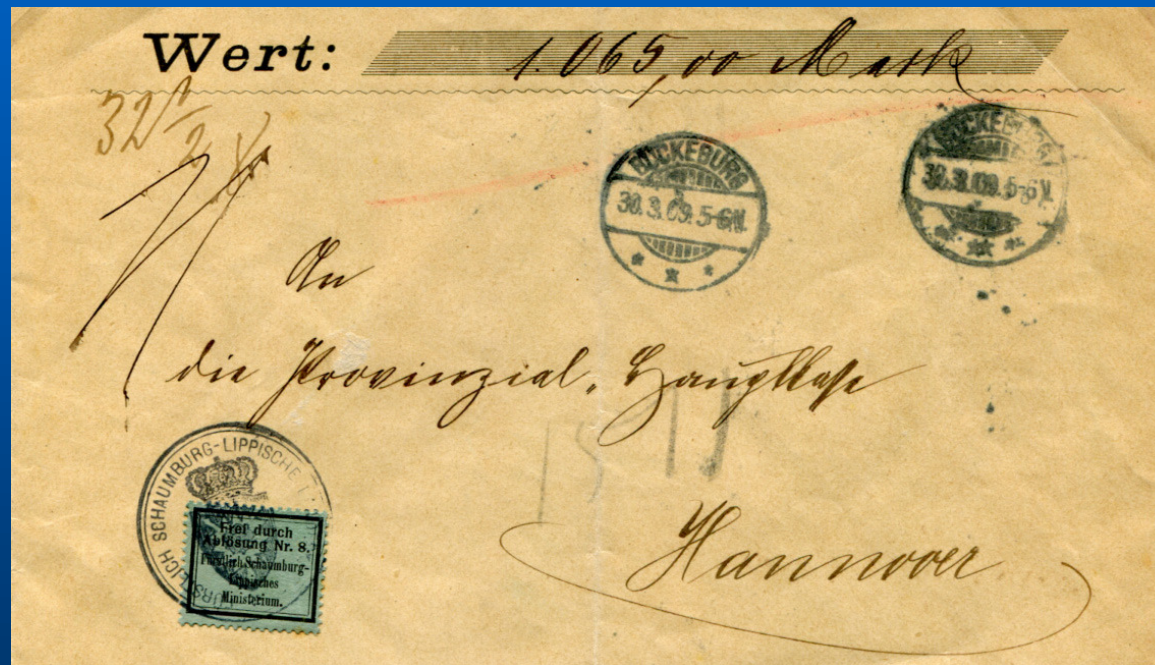 Wert: 1.065,00 Mark
32 1/2
BÜCKEBURG
30.3.09.5-6N.
BÜCKEBURG
30.3.09.5-6N.
An
die Provinzial-Hauptkasse
Hannover
FÜRSTLICH SCHAUMBURG-LIPPISCHE
Frei durch
Ablösung Nr. 8.
Fürstlich Schaumburg-
Lippisches
Ministerium.